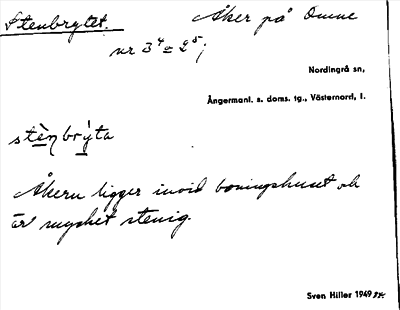 Stenbrytet. Åker på Omne
nr 3⁴ = 2⁵;
Nordingrå sn,
Ångermanl. s. doms. tg., Västernorrl, l.
stènbrýta
Åkern ligger invid boningshuset och
är mycket stenig.
Sven Hiller 1949